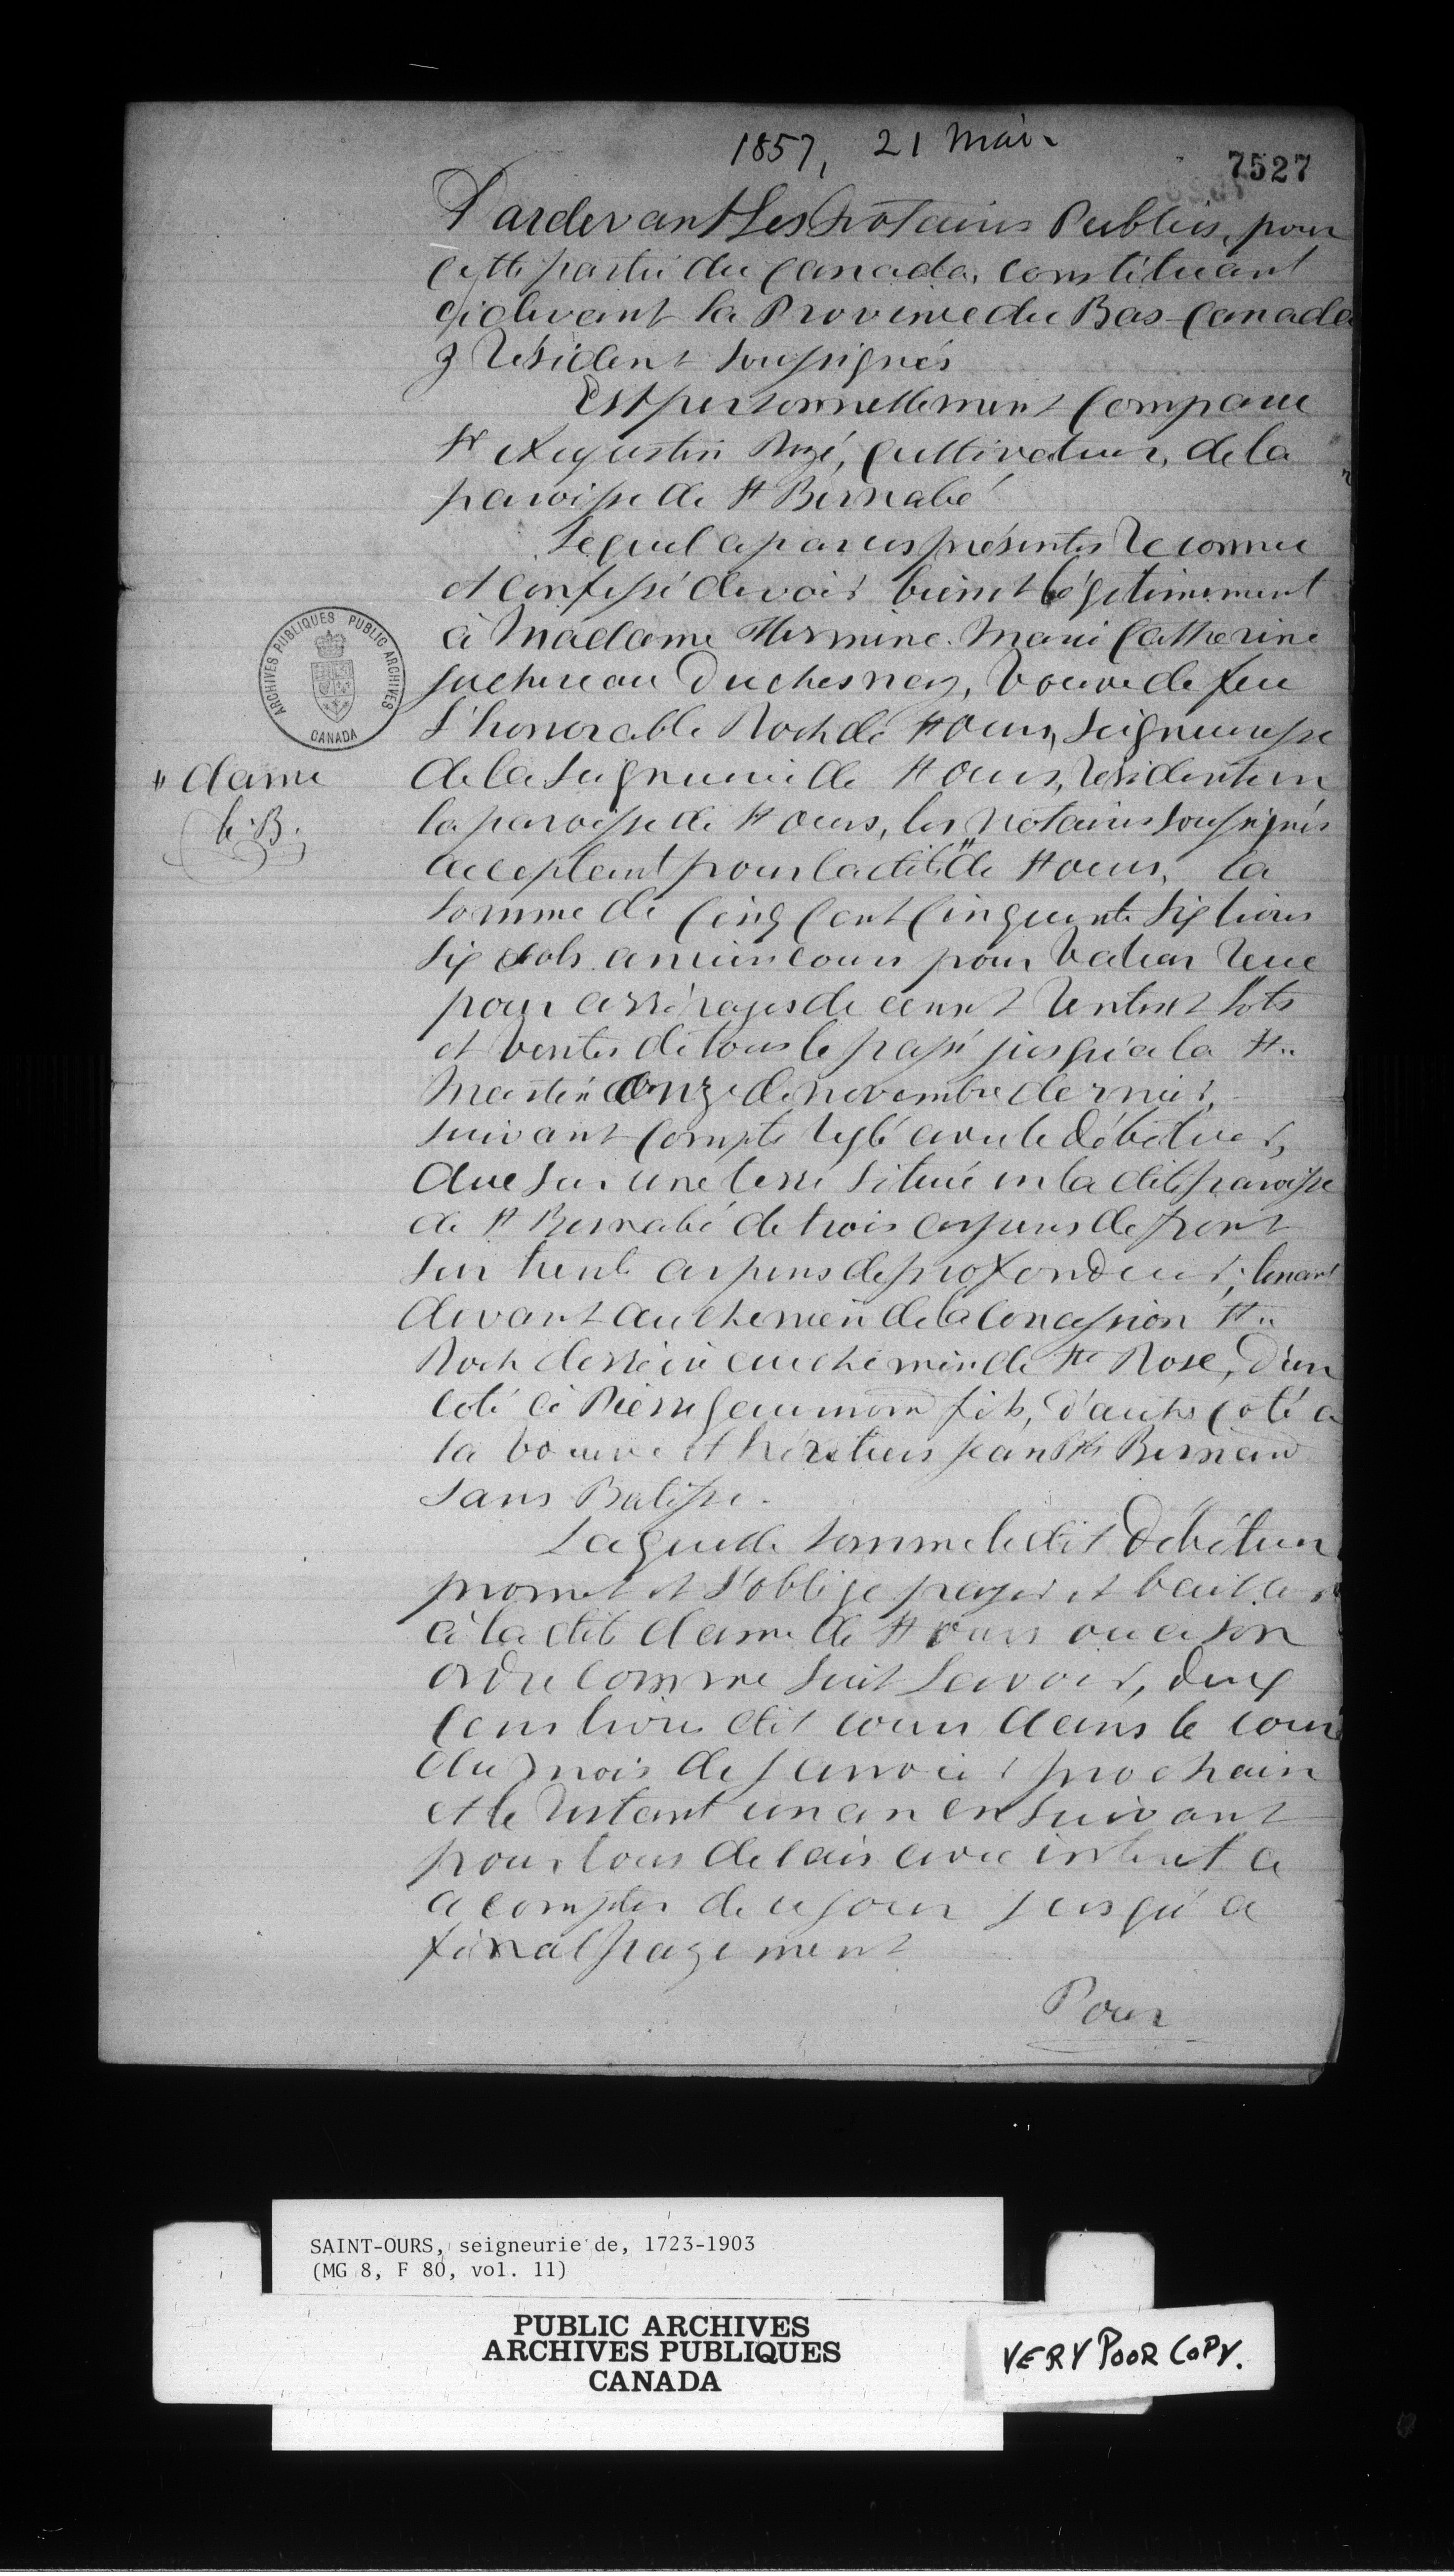 1857, 21 Mai.
7527
Pardevant Les Notaires Publics, pour
cette partie du Canada, constituant
cidevant la Province du Bas-Canada
y Résident soussignés
Est personnellement Comparu
Sr Augustin Cultivateur, de la
paroisse de St Bernabé
Lequel a par ces présentes Reconnu
et Confessé devoir bien et légitimement
à Madame Hermine Marie Catherine
Juchereau Duchesnay, Veuve de feu
L'honorable Roch de St Ours, Seigneuresse
de la Seigneurie de St Ours, Résidente en
la paroisse de St Ours, les Notaires Soussignés
acceptant pour la dite " de St Ours, la
Somme de Cinq Cent Cinquante Six livres
Six sols ancien cours pour Valeur Reçue
pour arrérages de cens et Rentes et Lots
et Ventes de tous le passé jusqu'a la St..
Martin Onze de Novembre dernier,
suivant Compte réglé avec le Débiteur,
due sur une terre située en la dite paroisse
de St Bernabé de trois arpens de front
sur trente arpens de profondeur, tenant
devant au chemin de la Concession St..
Roch derrière au chemin de Ste Rose, d'un
coté à Pierre fils, d'autre coté a
la Veuve et héritiers Jean Bte Bernard
sans Batisse.
Laquelle Somme ledit Débiteur
promet et s'oblige payer et bailler
à la dite dame de St Ours ou a son
ordre comme suit Savoir, deux
Cens livres dit cours dans le cour
du mois de Janvier prochain
et le Restant un an en suivant
pour tous delais avec intérêt a
a compter de ce jour jusqu'a
final payement
Pour
" dame
b.B.
ARCHIVES PUBLIQUES PUBLIC ARCHIVES
CANADA
SAINT-OURS, seigneurie de, 1723-1903
(MG 8, F 80, vol. 11)
PUBLIC ARCHIVES
ARCHIVES PUBLIQUES
CANADA
VERY POOR COPY.